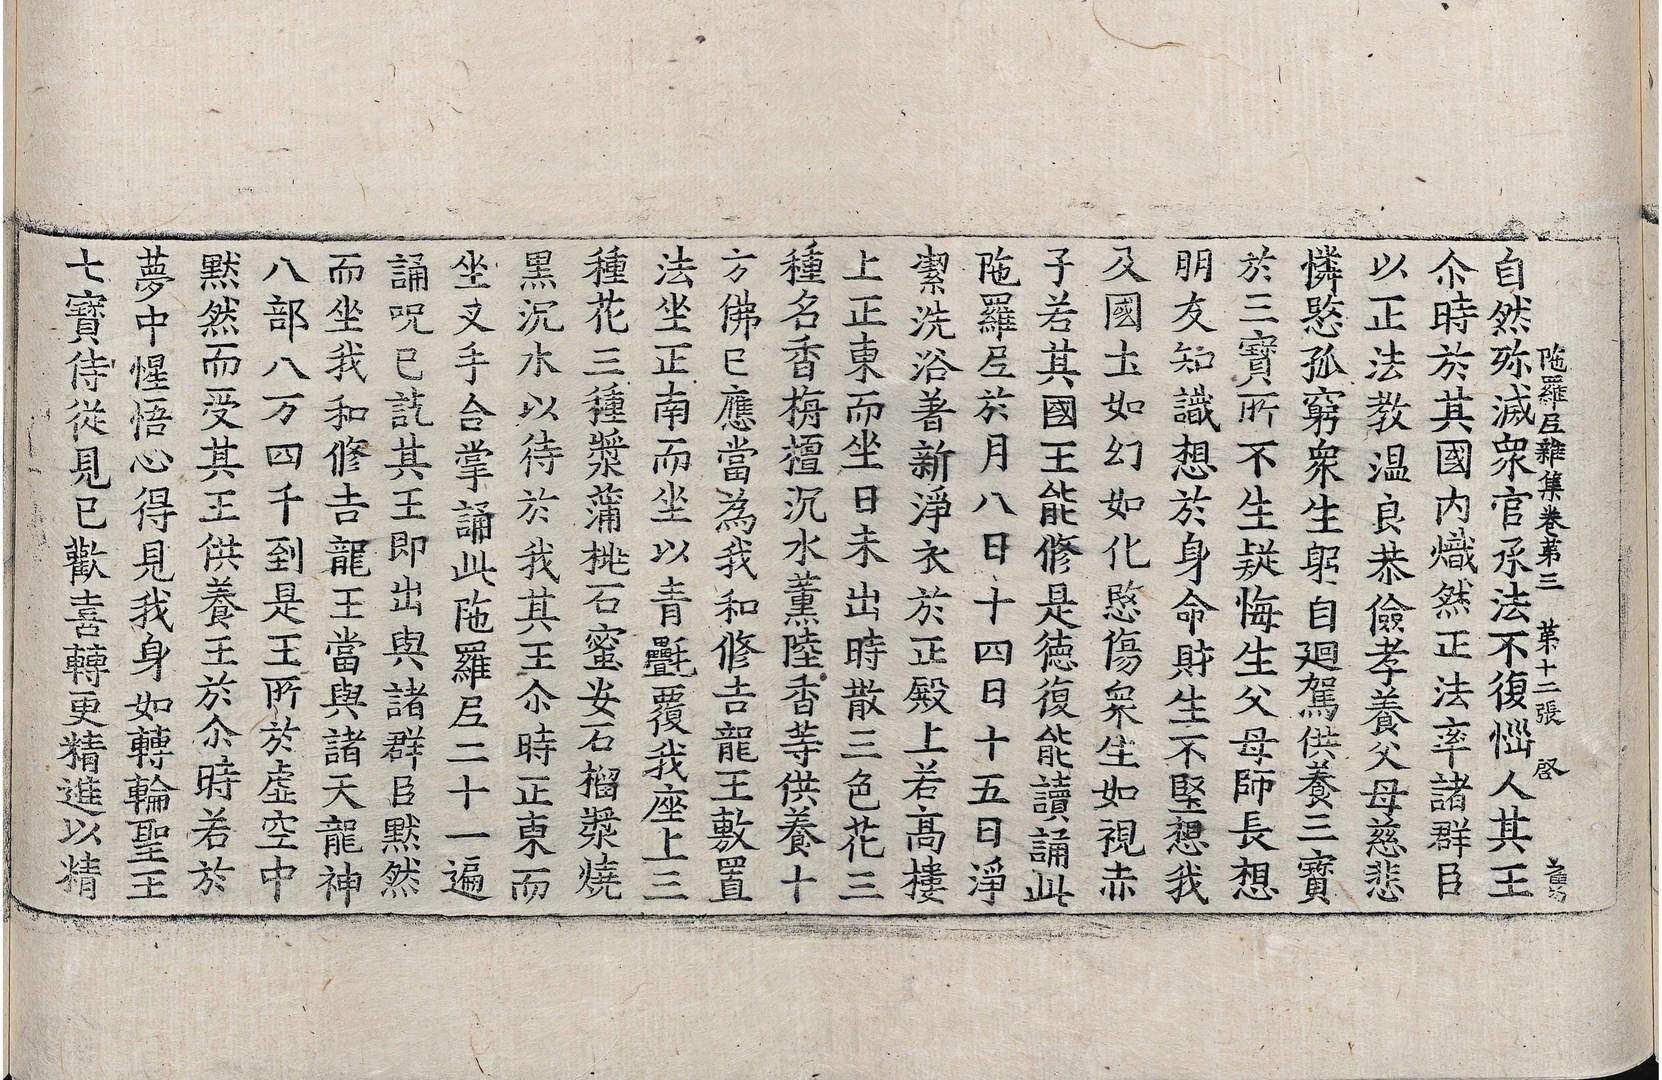 陁羅尼雜集卷第三 第十二張 啓
自然殄滅衆官承法不復惱人其王
尒時於其國内熾然正法率諸群臣
以正法教温良恭儉孝養父母慈悲
憐愍孤窮衆生躬自迴駕供養三寶
於三寶所不生疑悔生父母師長想
朋友知識想於身命財生不堅想我
及國土如幻如化愍傷衆生如視赤
子若其國王能修是徳復能讀誦此
陁羅尼於月八日十四日十五日淨
潔洗浴著新淨衣於正殿上若高樓
上正東而坐日未出時散三色花三
種名香栴檀沉水薰陸香等供養十
方佛已應當為我和修吉龍王敷置
法坐正南而坐以青氎覆我座上三
種花三種漿蒲桃石蜜安石榴漿燒
黒沉水以待於我其王尒時正東而
坐叉手合掌誦此陁羅尼二十一遍
誦呪已訖其王即出與諸群臣默然
而坐我和修吉龍王當與諸天龍神
八部八万四千到是王所於虛空中
默然而受其王供養王於尒時若於
夢中惺悟心得見我身如轉輪聖王
七寶侍從見已歡喜轉更精進以精